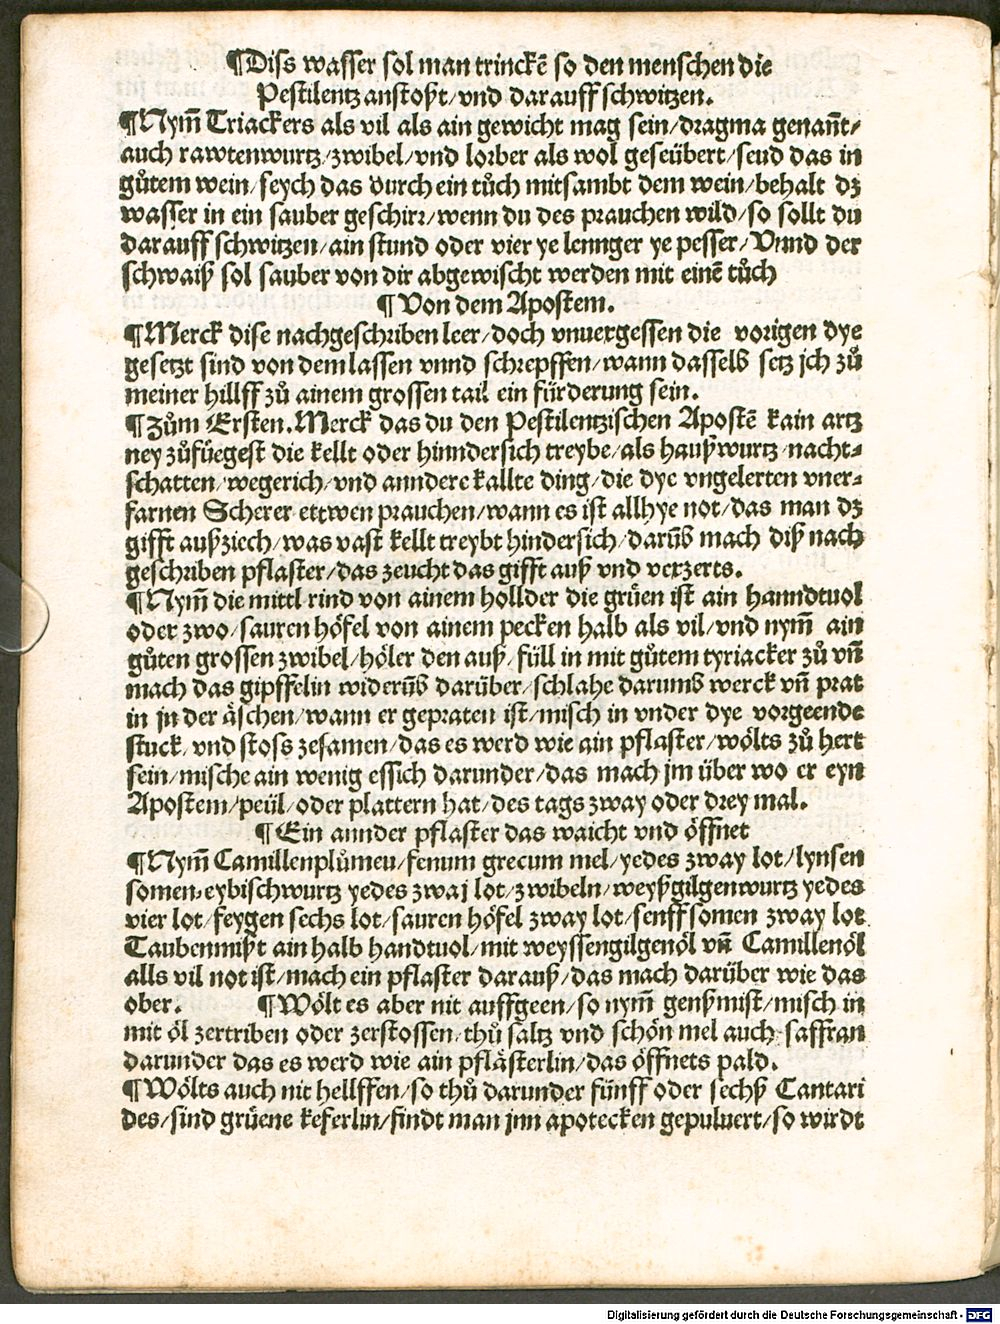 ¶Diss wasser sol man trinckē so den menschen die
Pestilentz anstoßt/vnd darauff schwitzen.
¶Nym̄ Triackers als vil als ain gewicht mag sein/dragma genan̄t/
auch rawtenwurtz/zwibel/vnd lorber als wol geseübert/seud das in
gůtem wein/seych das durch ein tůch mitsambt dem wein/behalt dz
wasser in ein sauber geschirr/wenn du des prauchen wild/so sollt du
darauff schwitzen/ain stund oder vier ye lennger ye pesser/Vnnd der
schwaiß sol sauber von dir abgewischt werden mit einē tůch
¶Von dem Apostem.
¶Merck dise nachgeschriben leer/doch vnuergessen die vorigen dye
gesetzt sind von dem lassen vnnd schrepffen/wann dasselb setz jch zů
meiner hillff zů ainem grossen tail ein fürderung sein.
¶Zům Ersten. Merck das du den Pestilentzischen Apostē kain artz
ney zůfüegest die kellt oder hinndersich treybe/als haußwurtz/nacht⸗
schatten/wegerich/vnd anndere kallte ding/die dye vngelerten vner⸗
farnen Scherer ettwen prauchen/wann es ist allhye not/das man dz
gifft außziech/was vast kellt treybt hindersich/darūb mach diß nach
geschriben pflaster/das zeucht das gifft auß vnd verzerts.
¶Nym̄ die mittl rind von ainem hollder die grüen ist ain hanndtuol
oder zwo/sauren höfel von ainem pecken halb als vil/vnd nym̄ ain
gůten grossen zwibel/höler den auß/füll in mit gůtem tyriacker zů vn̄
mach das gipffelin widerūb darüber/schlahe darumb werck vn̄ prat
in jn der äschen/wann er gepraten ist/misch in vnder dye vorgeende
stuck/vnd stoss zesamen/das es werd wie ain pflaster/wölts zů hert
sein/mische ain wenig essich darunder/das mach jm über wo er eyn
Apostem/peül/oder plattern hat/des tags zway oder drey mal.
¶Ein annder pflaster das waicht vnd öffnet
¶Nym̄ Camillenplůmen/fenum grecum mel/yedes zway lot/lynsen
somen/eybischwurtz yedes zwaj lot/zwibeln/weyßgilgenwurtz yedes
vier lot/feygen sechs lot/sauren höfel zway lot/senffsomen zway lot
Taubenmißt ain halb handtuol/mit weyssengilgenöl vn̄ Camillenöl
alls vil not ist/mach ein pflaster darauß/das mach darüber wie das
ober. ¶Wölt es aber nit auffgeen/so nym̄ genßmist/misch in
mit öl zertriben oder zerstossen/thů saltz vnd schön mel auch saffran
darunder das es werd wie ain pflästerlin/das öffnets pald.
¶Wölts auch nit hellffen/so thů darunder fünff oder sechß Cantari
des/sind grüene keferlin/findt man jnn apotecken gepuluert/so wirdt
Digitalisierung gefördert durch die Deutsche Forschungsgemeinschaft - DFG